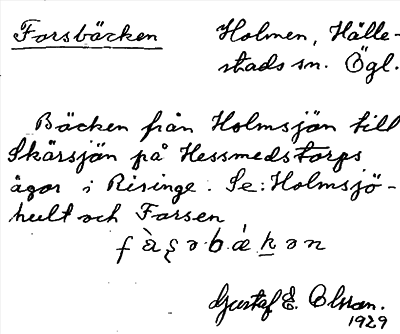 Forsbäcken
Holmen, Hälle-
stads sn. Ögl.
Bäcken från Holmsjön till
Skärsjön på Hessmedstorps
ägor i Risinge. Se: Holmsjö-
hult och Forsen
Gustaf E. Olsson.
1929